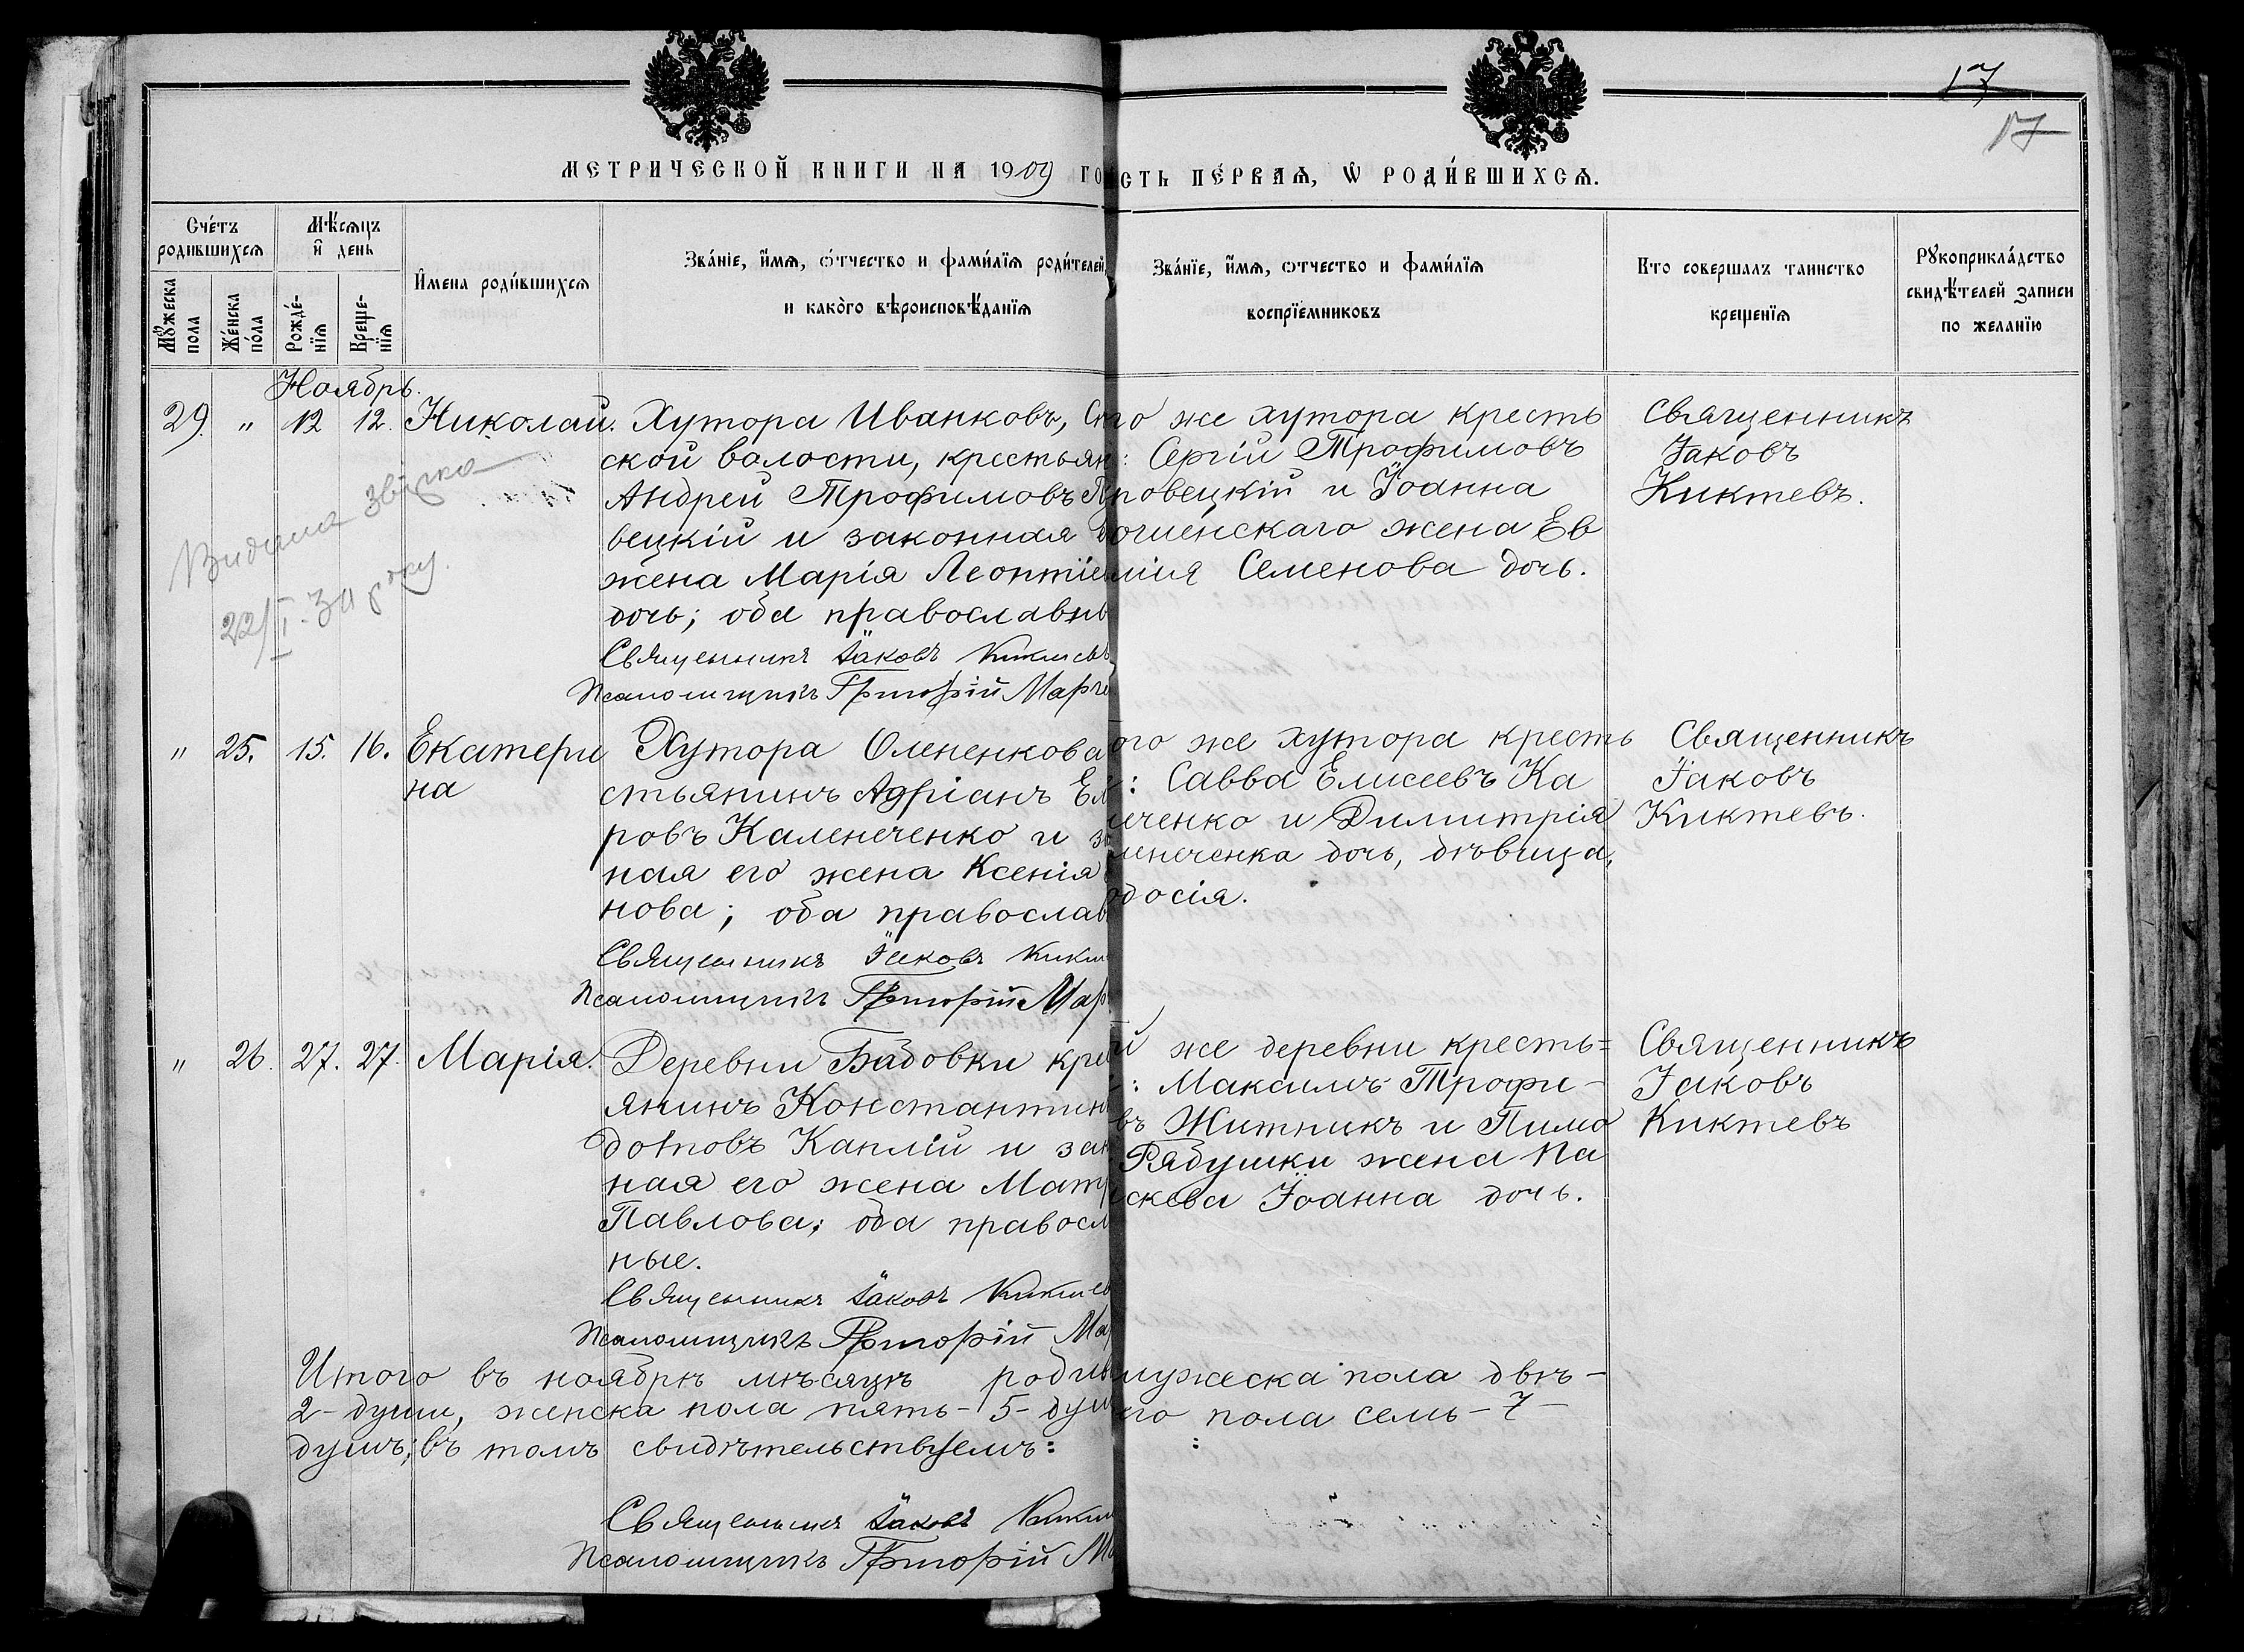 17
17
МЕТРИЧЕСКОЙ КНИГИ НА 1909 ГО
СТЬ ПЕ́РВАѦ, Ѡ РОДИ́ВШИХСѦ.
Сче́тъ родившихсѧ
Мѣ́сѧцъ и҆ день
И҆мена роди́вшихсѧ
Зва́нїе, и҆́мѧ, ѻ҆́тчество и фами́лїѧ роди́телей,
и како́го вѣроисповѣ́данїѧ
Зва́нїе, и҆́мѧ, ѻтчество и фами́лїѧ
воспрїе́мниковъ
Кто совершалъ таинство
крещенїѧ
Рꙋкоприкла́дство
свидѣ́телей записи
по желанїю
Мꙋ́жеска пола
Же́нска по́ла
Рожде́нїѧ
Креще-нїѧ
Ноябрь.
29. " 12 12. Николай. Хутора Иванковъ,
ской волости, крестьян
Андрей Трофимовъ
вецкій и законная
жена Марія Леонтіе
дочь; оба православн
Священникъ Іаковъ Киктевъ
Псаломщикъ Григорій Марч
го же хутора кресть
: Сергій Трофимовъ
ровецкій и Іоанна
жена Ев
мія Семенова дочь.
Священникъ
Іаковъ
Киктевъ.
Видана звірка
22/I. 30 року.
" 25. 15. 16. Екатери
на
Хутора Олененкова
стьянинъ Адріанъ Ел
ровъ Каленеченко и з
ная его жена Ксенія
нова; оба православ
Священникъ Іаковъ Кикт
Псаломщикъ Григорій Мар
ого же хутора кресть
: Савва Елисеевъ Ка
ченко и Димитрія
ленеченка дочь, дѣвица,
одосія.
Священникъ
Іаковъ
Киктевъ.
" 26. 27. 27. Марія.
Деревни Бабовки кре
янинъ Константин
дотовъ Каплій и зак
ная его жена Матр
Павлова; оба правосл
ные.
Священникъ Іаковъ Киктев
Псаломщикъ Григорій Ма
й же деревни кресть=
: Максимъ Трофи-
въ Житникъ и Пимо
Рябушки жена Па
скева Іоанна дочь.
Священникъ
Іаковъ
Киктевъ
Итого въ ноябрѣ мѣсяцѣ родив мужеска пола двѣ-
2- души, женска пола пять- 5- душ его пола семь- 7-
душъ; въ томъ свидѣтельствуемъ: :
Священникъ Іаковъ Кикт
Псаломщикъ Григорій М